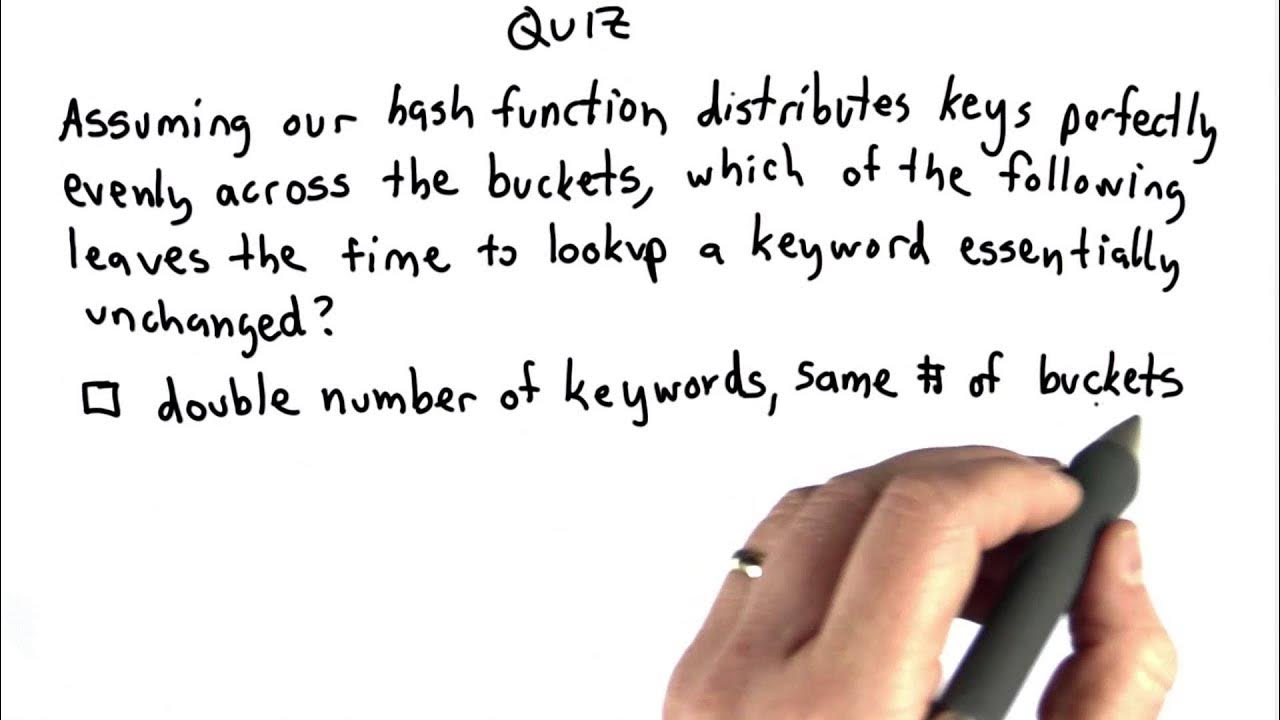 QUIZ
Assuming our hash function distributes keys perfectly
evenly across the buckets, which of the following
leaves the time to lookup a keyword essentially
unchanged?
□ double number of keywords, same # of buckets